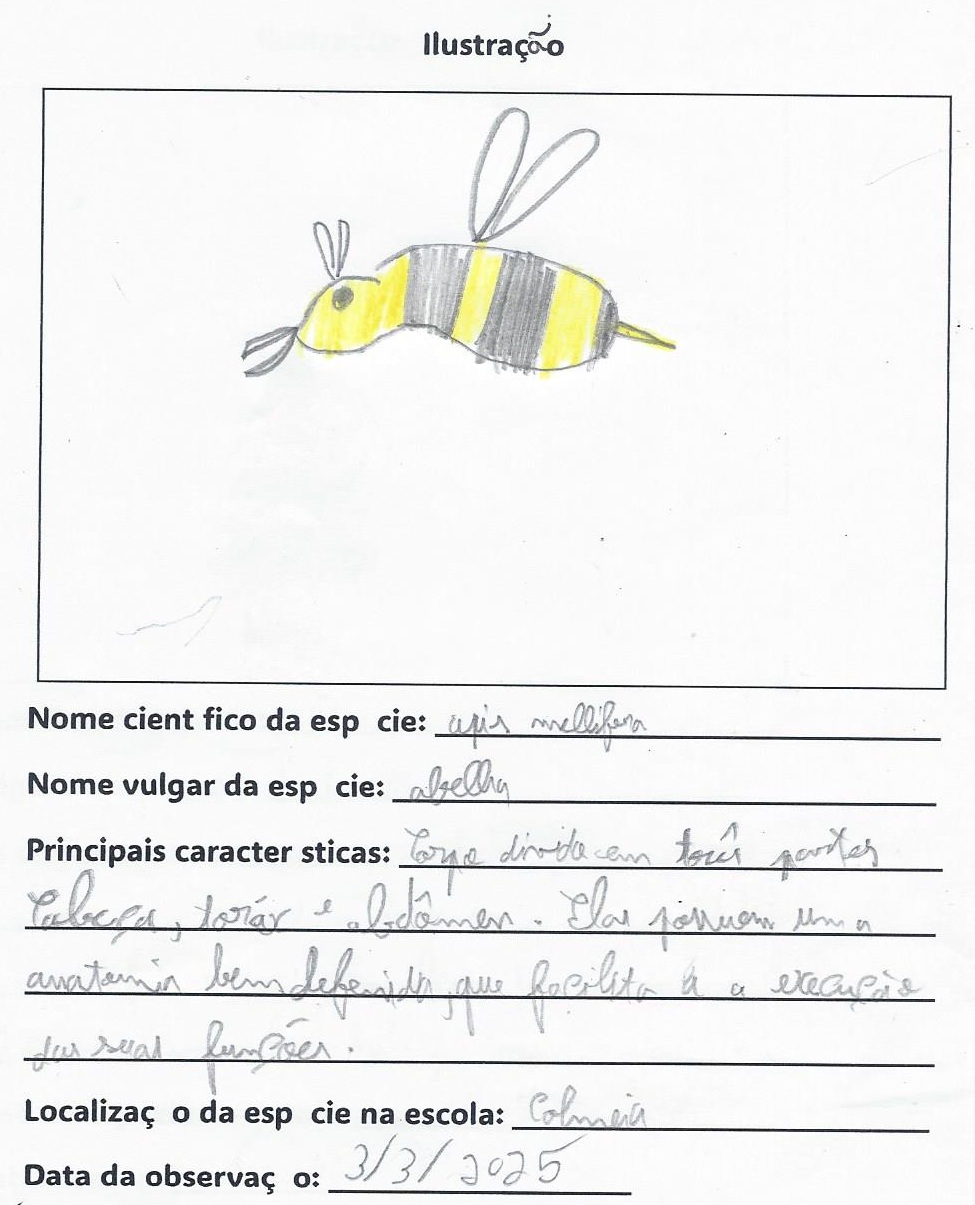 Ilustração
Nome cient fico da esp cie: apis mellifera
Nome vulgar da esp cie: abelha
Principais caracter sticas: Corpo dividoem três partes
Cabeça, toráx e abdômen. Elas possuem uma
anatomia bem defenida, que facilita a a execução
das suas funções.
Localizaç o da esp cie na escola: Colmeia
Data da observaç o: 3/3/2025